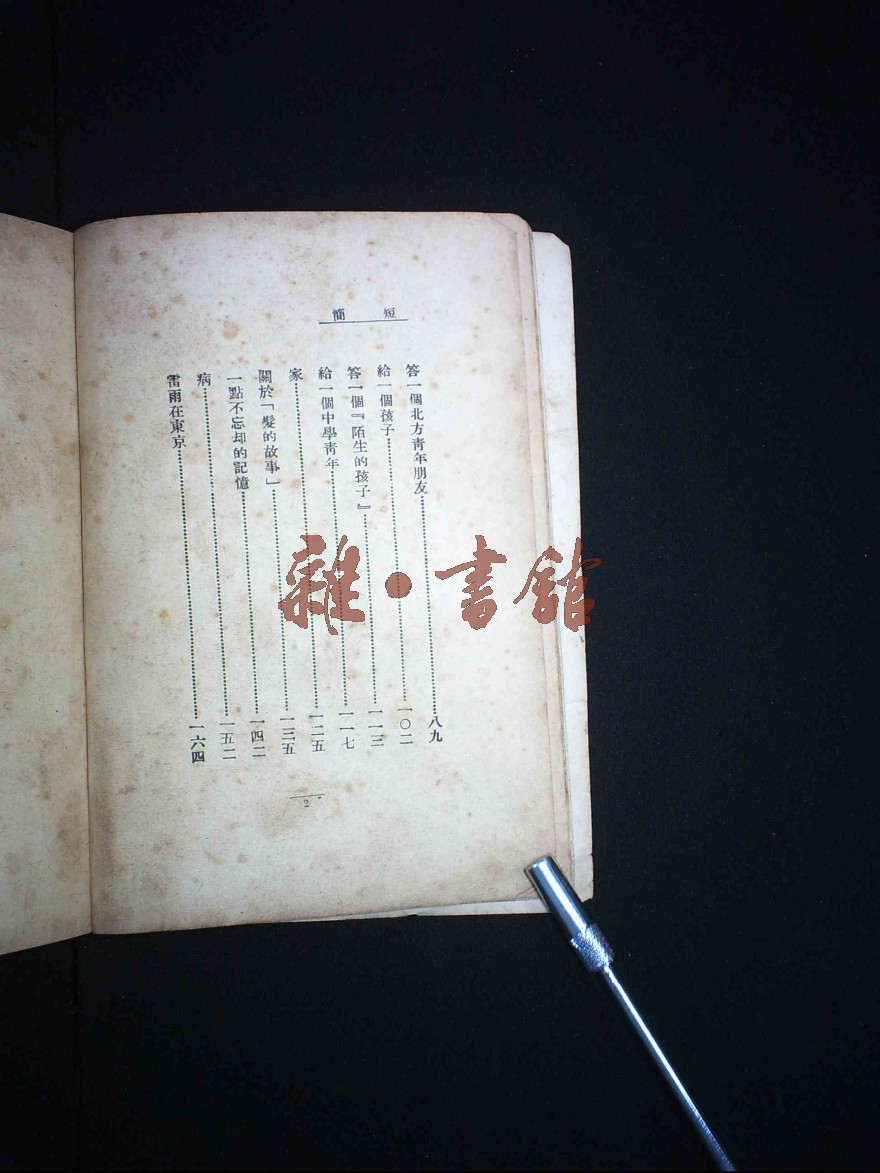 短簡
答一個北方青年朋友……八九
給一個孩子……一〇二
答一個『陌生的孩子』……一一三
給一個中學青年……一一七
家……一二五
關於「髮的故事」……一三五
一點不忘却的記憶……一四二
病……一五二
雷雨在東京……一六四
2
雜·書館